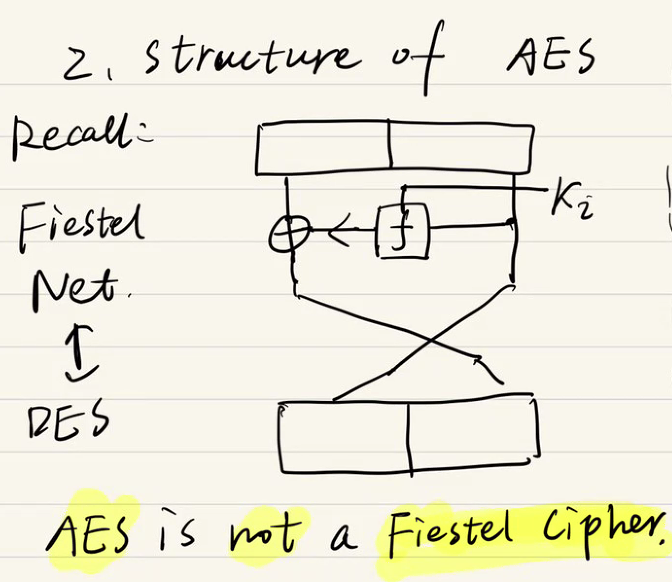 2. Structure of AES
Recall:
Ki
f
Fiestel
Net.
DES
AES is not a Fiestel Cipher.